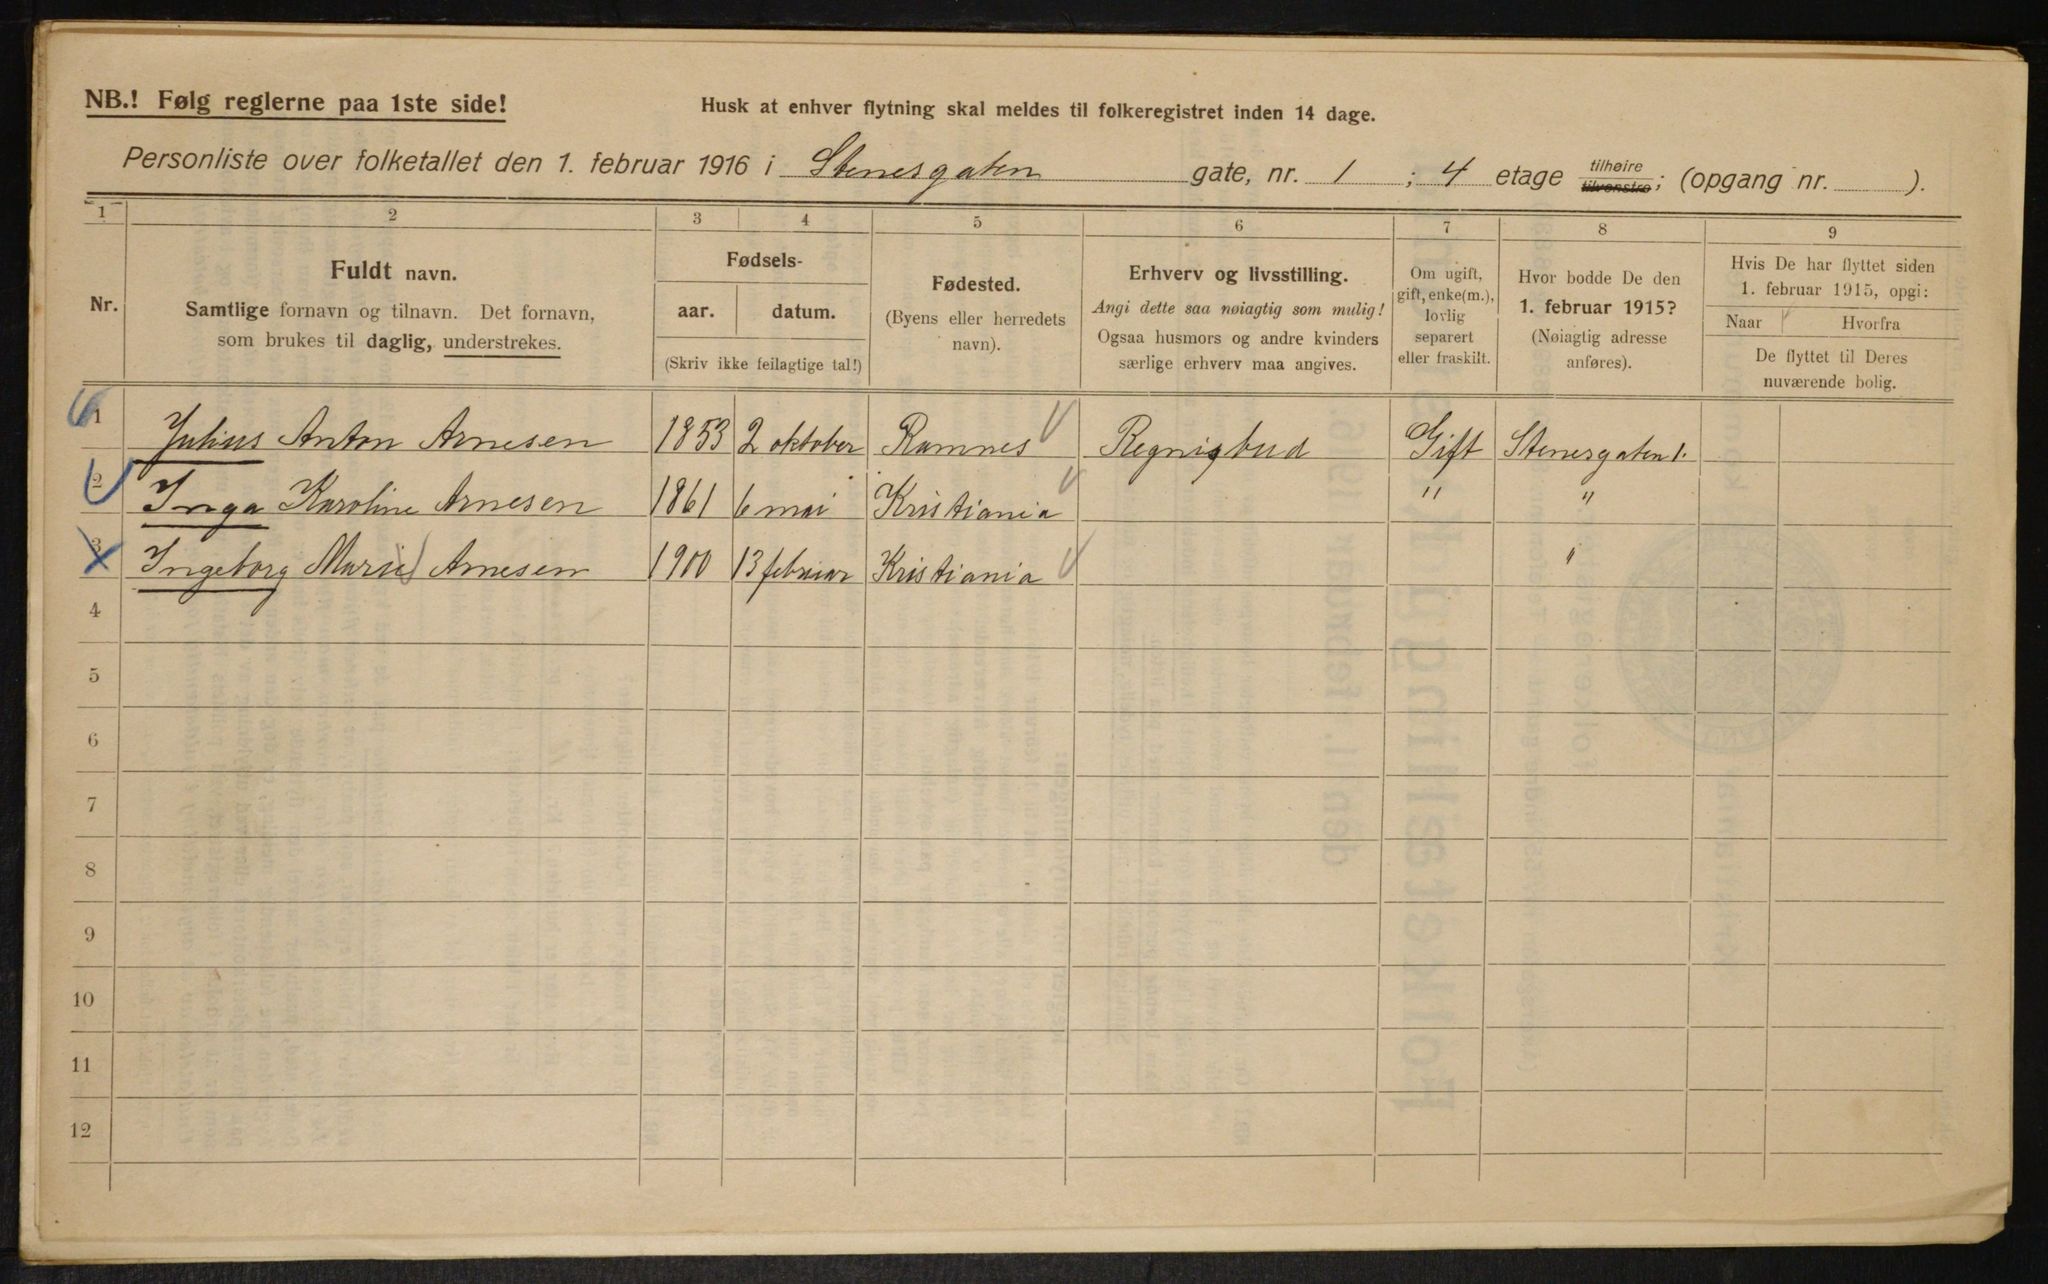 NB.! Følg reglerne paa 1ste side!
Husk at enhver flytning skal meldes til folkeregistret inden 14 dage.
Personliste over folketallet den 1. februar 1916 i Stenesgaten gate, nr. 1 ; 4 etage tilhøire tilvenstre; (opgang nr. ).
1 2 3 4 5 6 7 8 9
Nr.
Fuldt navn.
Samtlige fornavn og tilnavn. Det fornavn,
som brukes til daglig, understrekes.
Fødsels-
aar. datum.
(Skriv ikke feilagtige tal!)
Fødested.
(Byens eller herredets
navn).
Erhverv og livsstilling.
Angi dette saa nøiagtig som mulig!
Ogsaa husmors og andre kvinders
særlige erhverv maa angives.
Om ugift,
gift, enke(m.),
lovlig
separert
eller fraskilt.
Hvor bodde De den
1. februar 1915?
(Nøiagtig adresse
anføres).
Hvis De har flyttet siden
1. februar 1915, opgi:
Naar Hvorfra
De flyttet til Deres
nuværende bolig.
1 Julius Anton Arnesen 1853 2 oktober Ramnes Regnigbud Gift Stenersgaten 1.
2 Inga Karoline Arnesen 1861 6 mai Kristiania " "
3 Ingeborg Marie Arnesen 1900 13 februar Kristiania "
4
5
6
7
8
9
10
11
12